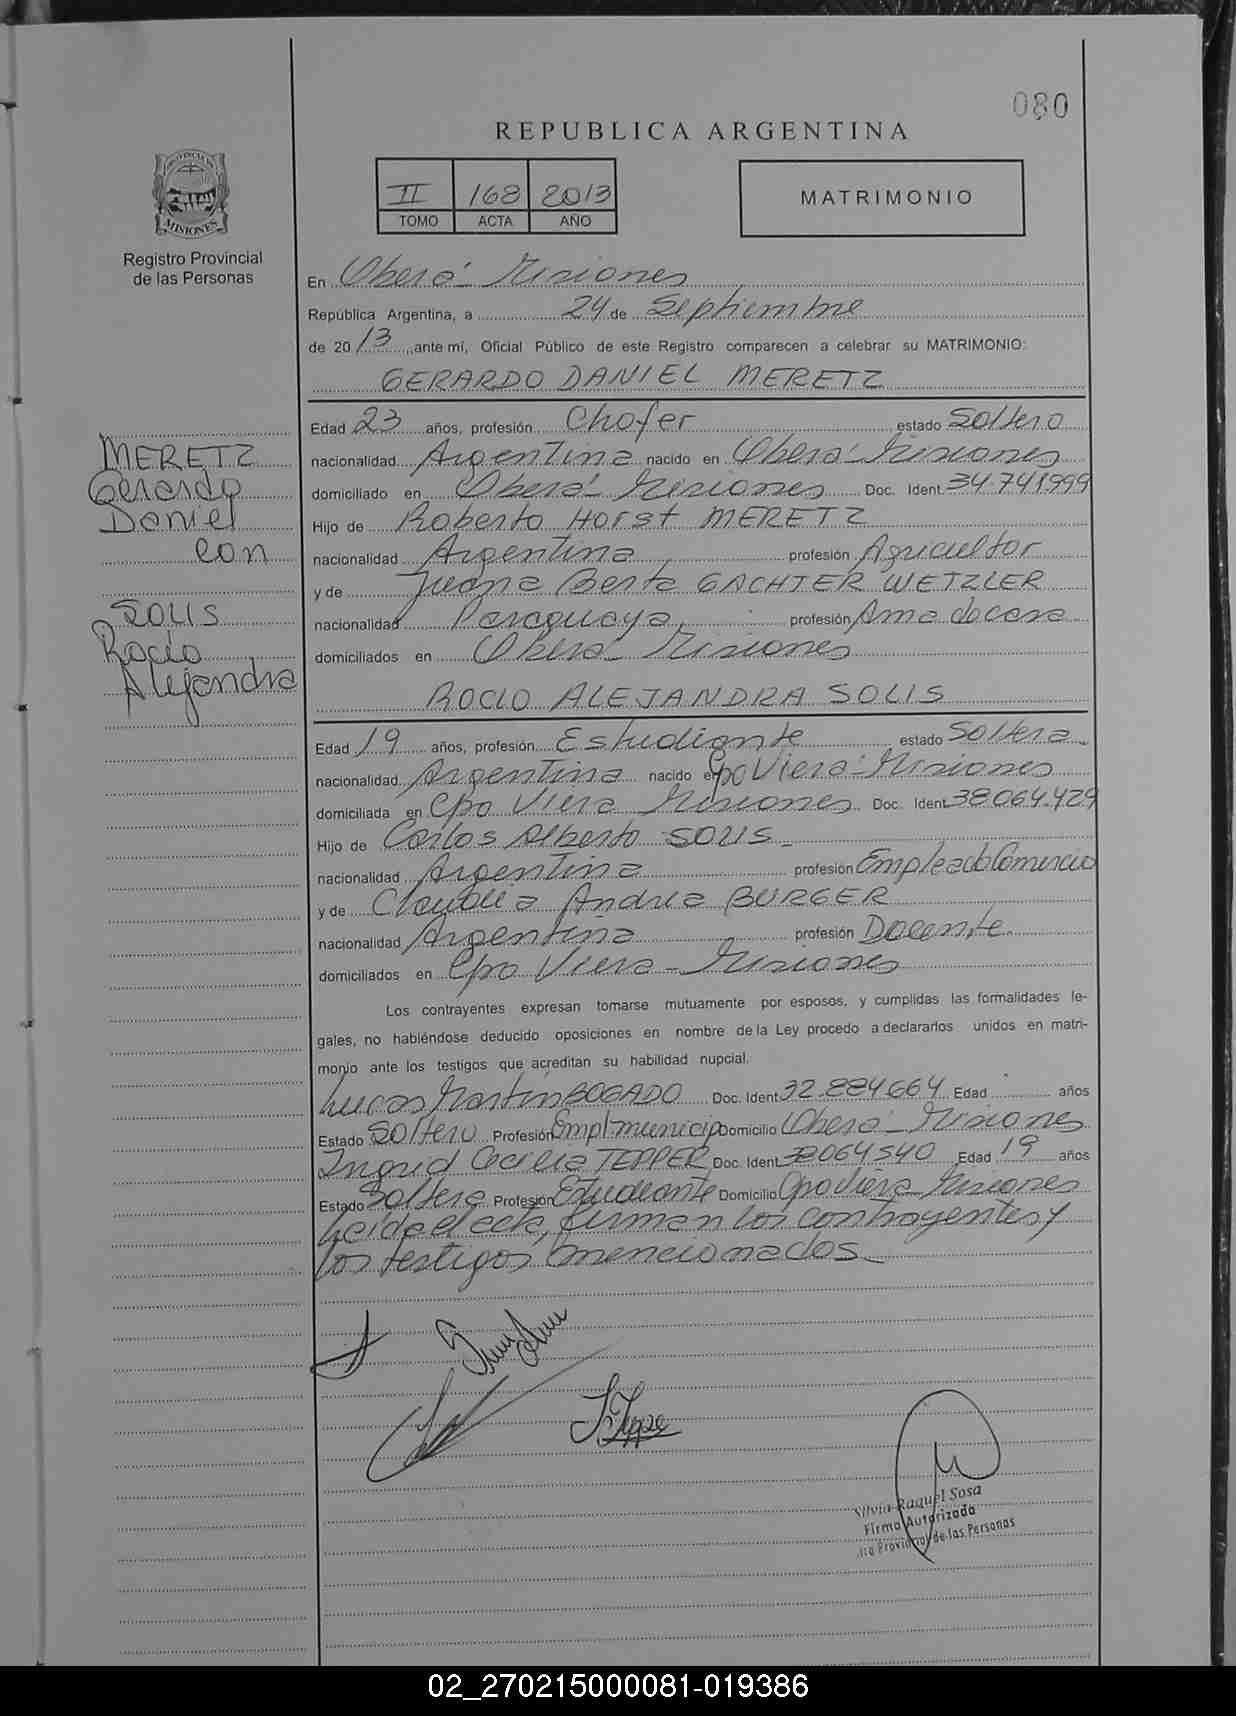 080
REPUBLICA ARGENTINA
II 168 2013
TOMO ACTA AÑO
MATRIMONIO
PROVINCIA DE
MISIONES
Registro Provincial
de las Personas
En Oberá - Misiones
República Argentina, a 24 de Septiembre
de 20 13, ante mí, Oficial Público de este Registro comparecen a celebrar su MATRIMONIO:
GERARDO DANIEL MERETZ
MERETZ
Gerardo
Daniel
con
SOLIS
Rocio
Alejandra
Edad 23 años, profesión Chofer estado Soltero
nacionalidad Argentina nacido en Oberá - Misiones
domiciliado en Oberá - Misiones Doc. Ident. 34.741.999
Hijo de Roberto Horst MERETZ
nacionalidad Argentina profesión Agricultor
y de Juana Berta GACHTER WETZLER
nacionalidad Paraguaya profesión Ama de casa
domiciliados en Oberá - Misiones
ROCIO ALEJANDRA SOLIS
Edad 19 años, profesión Estudiante estado Soltera
nacionalidad Argentina nacido en Cpo Viera - Misiones
domiciliada en Cpo Viera Misiones Doc. Ident. 38.064.429
Hijo de Carlos Alberto SOLIS
nacionalidad Argentina profesión Empleado Comercio
y de Claudia Andrea BURGER
nacionalidad Argentina profesión Docente
domiciliados en Cpo Viera - Misiones
Los contrayentes expresan tomarse mutuamente por esposos, y cumplidas las formalidades le-
gales, no habiéndose deducido oposiciones en nombre de la Ley procedo a declararlos unidos en matri-
monio ante los testigos que acreditan su habilidad nupcial.
Lucas Martin BOGADO Doc. Ident. 32.884.664 Edad años
Estado Soltero Profesión Empl. municip Domicilio Oberá - Misiones
Ingrid Cecilia TEPPER Doc. Ident. 38064540 Edad 19 años
Estado Soltera Profesión Estudiante Domicilio Cpo Viera Misiones
Leida el acta, firman los contrayentes y
los testigos mencionados
Silvia Raquel Sosa
Firma Autorizada
Provincial de las Personas
02_270215000081-019386